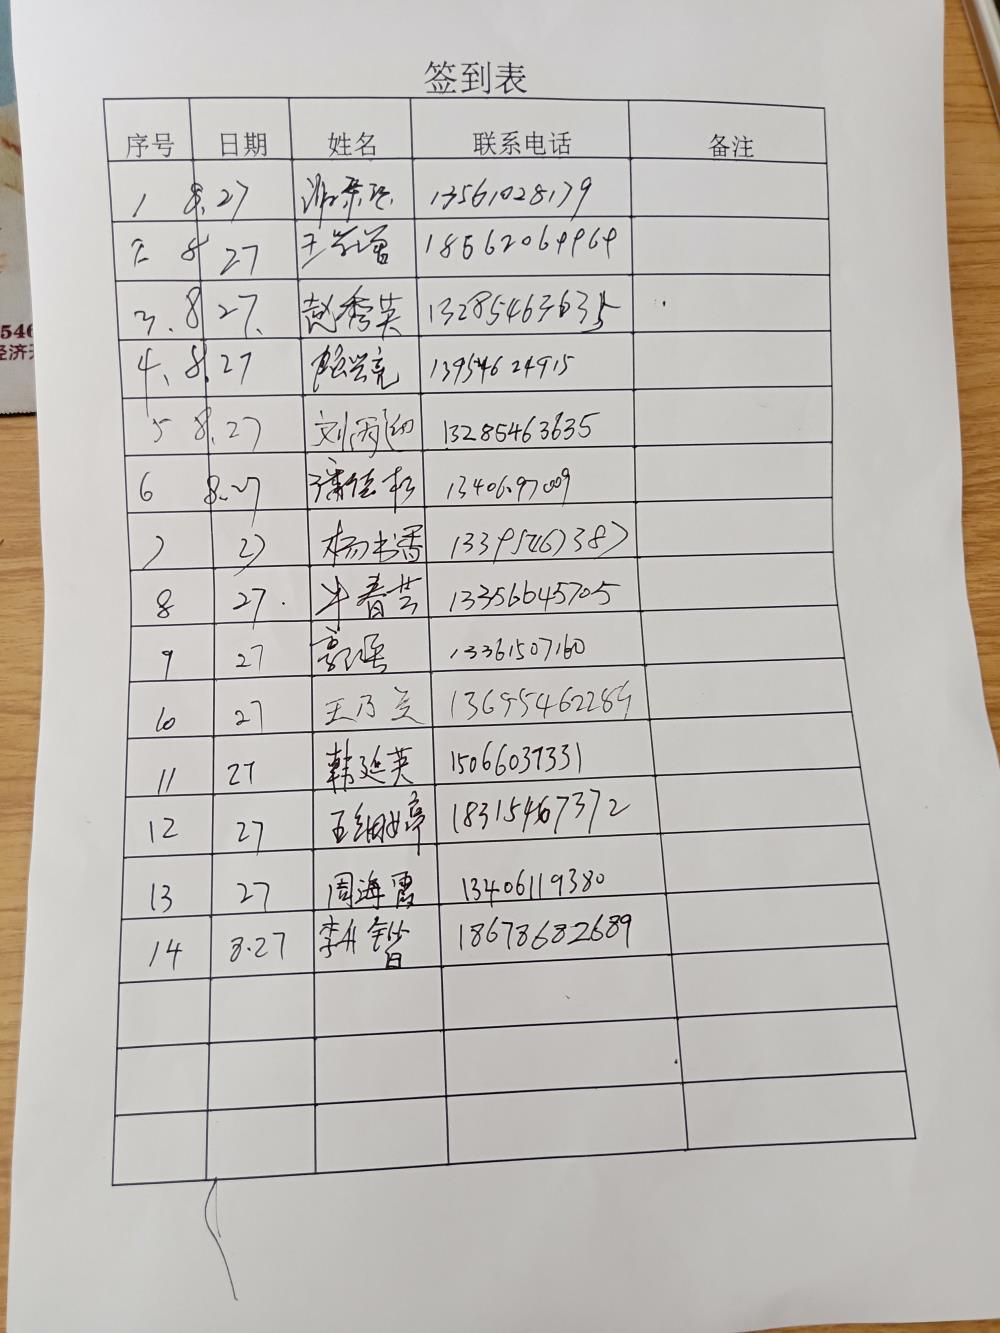 签到表
序号 日期 姓名 联系电话 备注
1 8.27 13561028179
2 8 27 18562064964
3. 8 27. 赵秀英 13285463635
4、8.27 13954624915
5 8.27 刘丙 13285463635
6 8.27 13406097009
7 27 杨书香 13395467387
8 27. 牛春芸 13356645705
9 27 郭强 13361507160
10 27 王乃兰 13695462284
11 27 韩延英 15066037331
12 27 王细婷 18315467372
13 27 周海霞 13406119380
14 8.27 李升 18678682689
546
经济